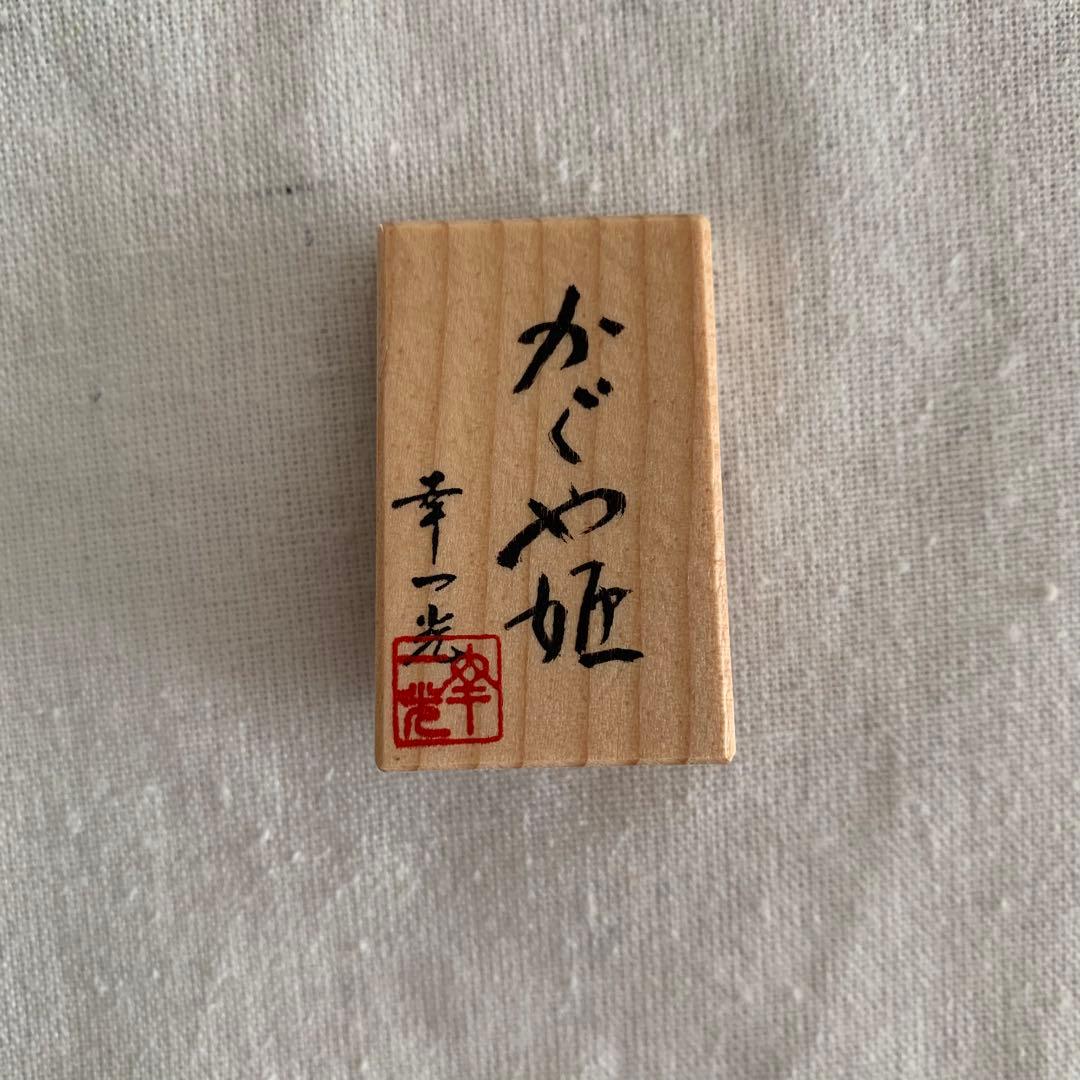 かぐや姫
幸一光
幸一光